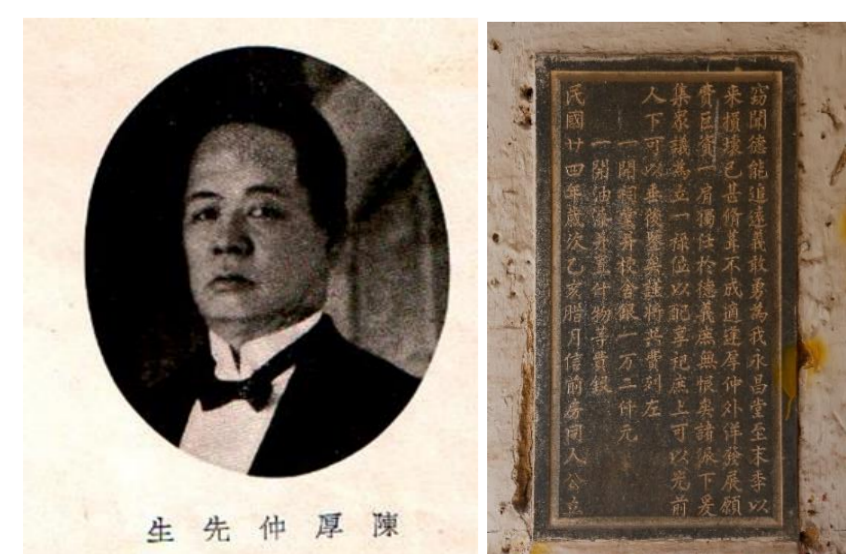 陳厚仲先生
窃聞德能追遠義敢勇為我永昌堂至末季以
来損壞已甚脩葺不成適逢厚仲外洋發展願
費巨資一肩獨任於德義庶無恨矣諸派下爰
集眾議為立一祿位以配享祀庶上可以光前
人下可以垂後鑒矣謹將共費列左
一開祠堂脊校金銀一万二仟元
一開油漆并置什物等費銀
民國廿四年歲次乙亥腊月信前房同人公立